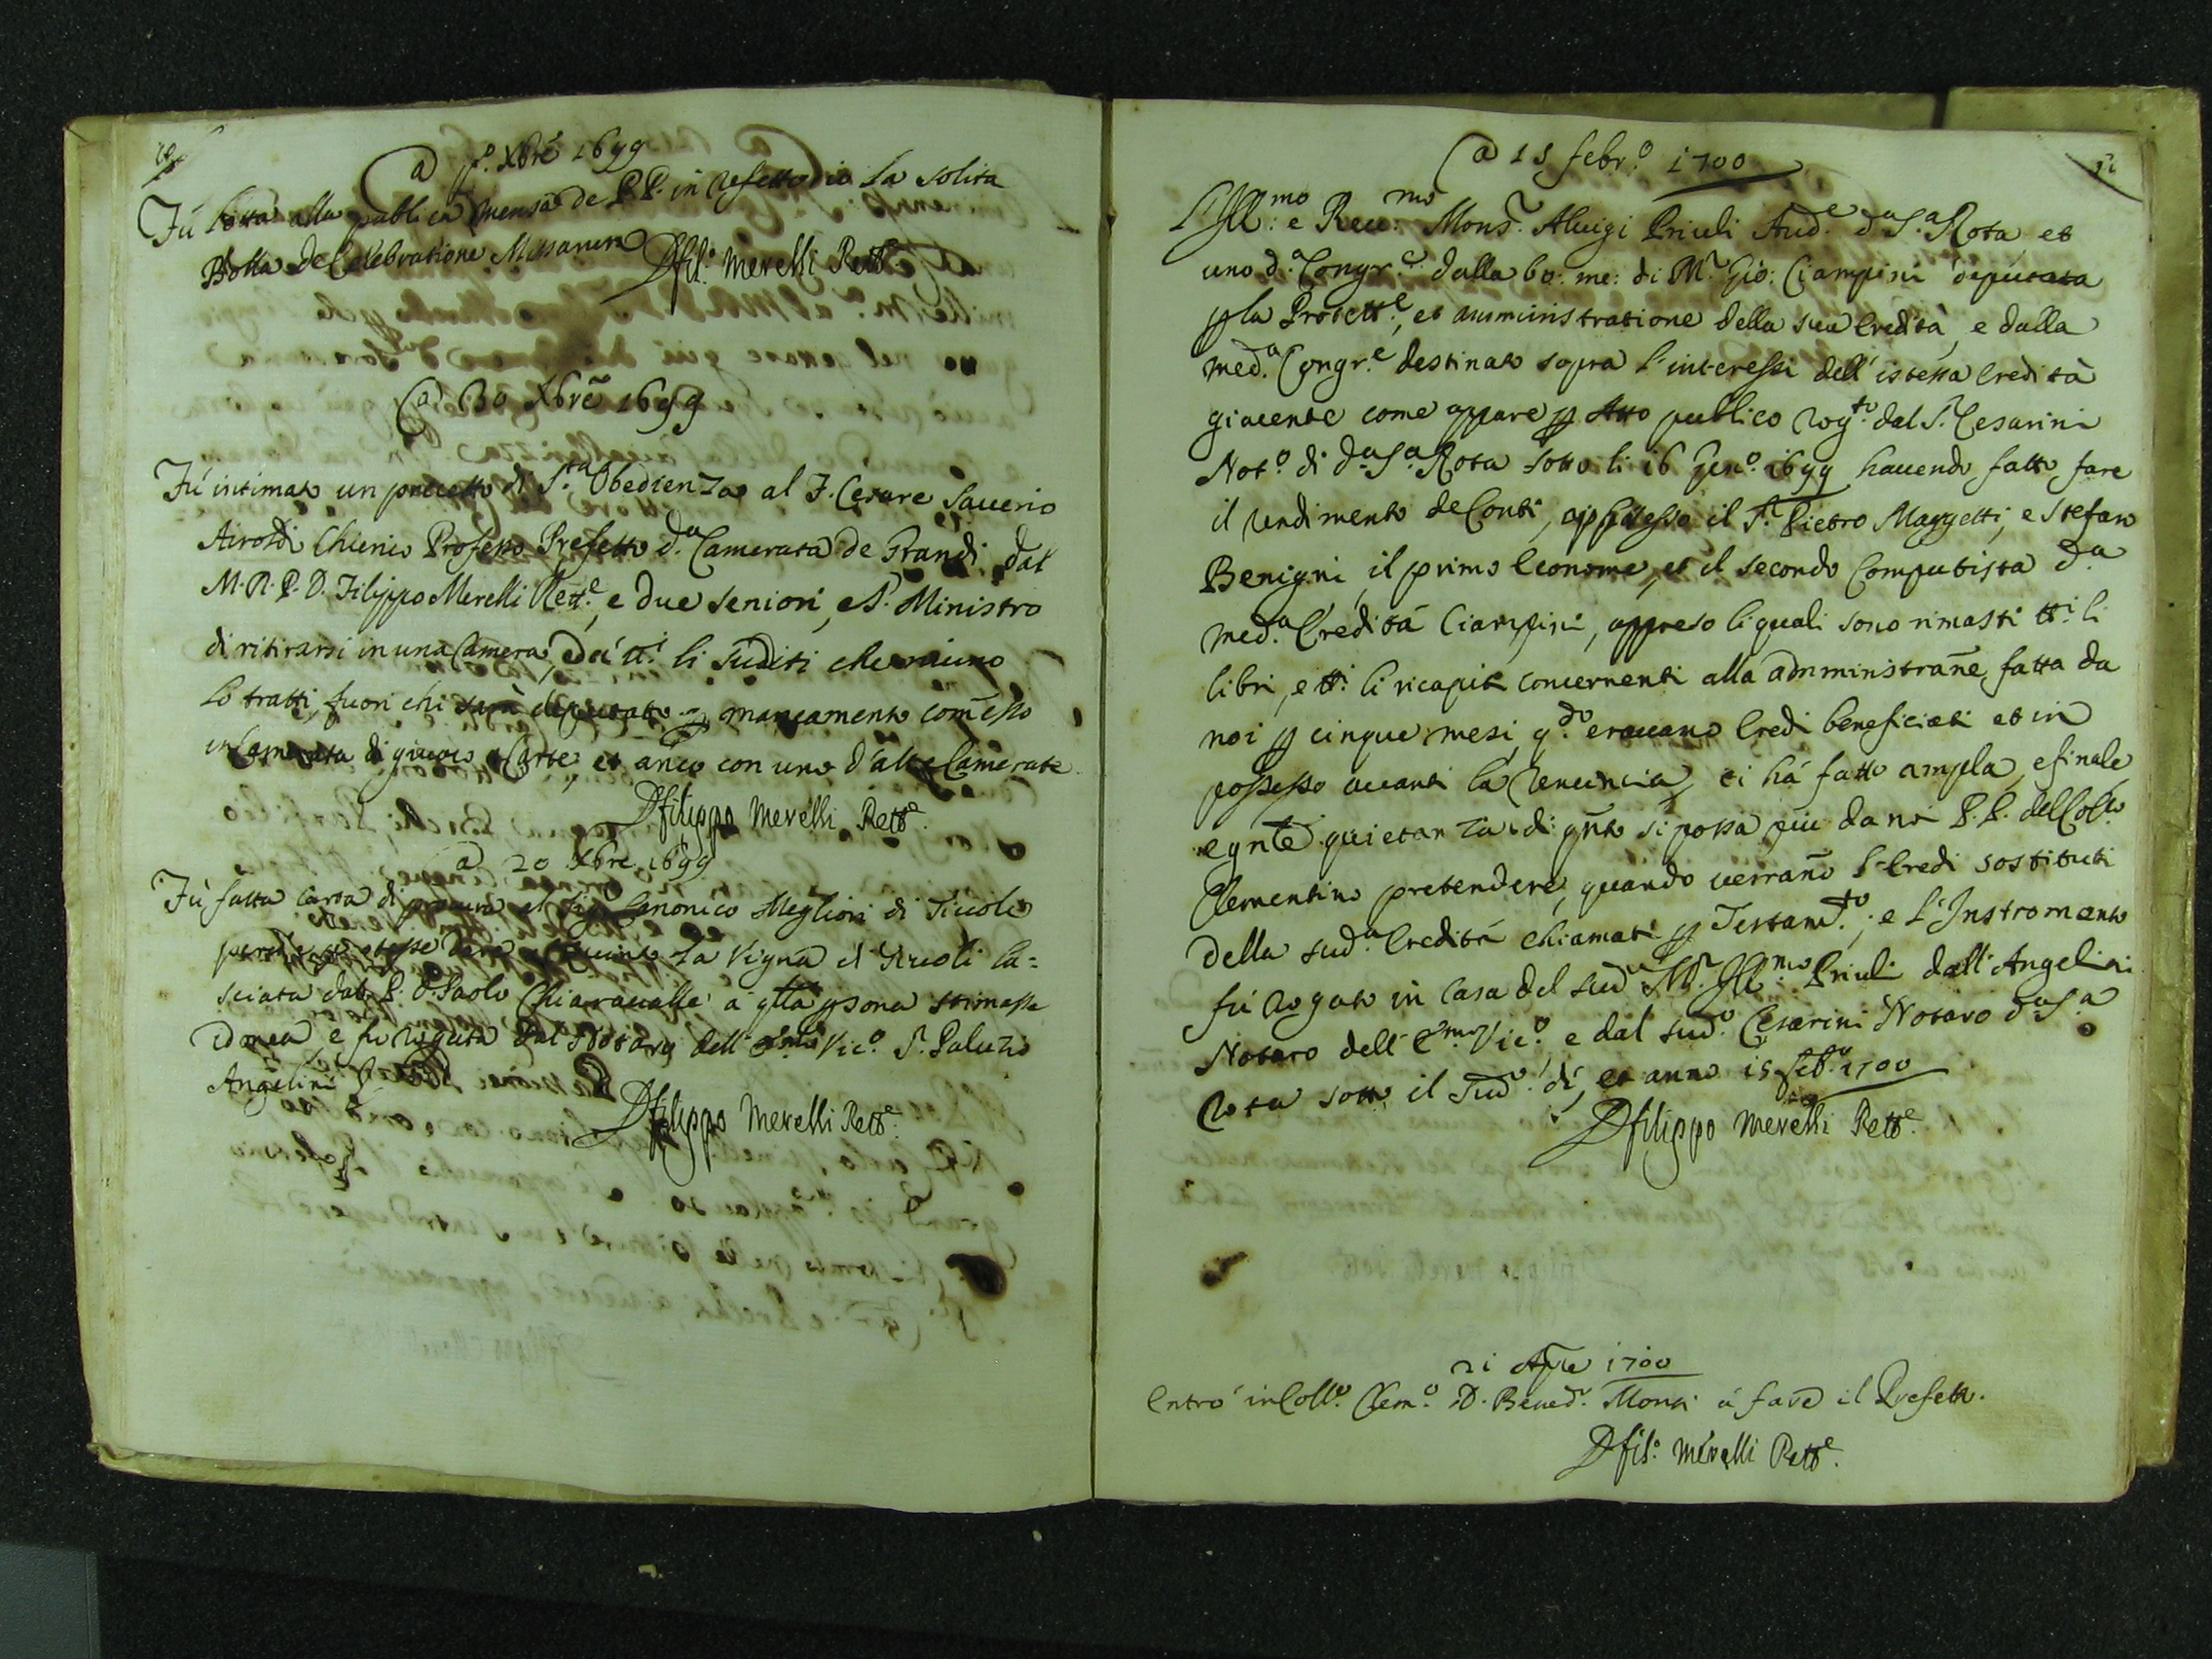 a p.º Xbre 1699
Fú letta alla publica mensa de P.P. in refettorio la solita
Bolla de Celebratione Missarum
D fil.º Merelli Rett.e
a 30 Xbre 1699
Fú intimato un precetto di S.ta Obedienza al F. Cesare Sauerio
Airoldi Chierico Professo Prefetto d.a Camerata de Grandi dal
M. R. P. D. Filippo Merelli Rett.e, e due seniori, e P. Ministro
di ritirarsi in una Camera, et á tt.i li suditi che niuno
lo tratti, fuori chi sará deputato p mancamento comesso
in Camerata di giuoco a Carte, et anco con uno d'altre Camerate.
D filippo Merelli Rett.e
a 20 Xbre 1699
Fú fatta carta di procura al Sig.r Canonico Megliori di Tiuoli
la Vigna di Tiuoli la=
sciata dal P. D. Paolo Chiaraualle a q.lla psona stimasse
idonea e fú rogata dal Notaro dell' Em.o Vic.o S. Paluzio
Angelini
D filippo Merelli Rett.e
a 15 febr.o 1700
L'Ill.mo e Reu.mo Mons.r Aluigi Priuli Aud.e d.a S.a Rota et
uno d.a Congr.e dalla bo: me: di M.r Gio: Ciampini deputata
p la Protett.e, et amministratione della sua Eredità, e dalla
med.a Congr.e destinato sopra l'interessi dell' istessa Eredità
giacente come appare p Atto publico rog.to dal S.r Cesarini
Not.o di d.a S.a Rota sotto li 16 Gen.o 1699 hauendo fatto fare
il rendimento de Conti, appresso il S.r Pietro Maggetti, e Stefano
Benigni, il primo Economo, et il secondo Computista d.a
med.a Eredità Ciampini, appreso li quali sono rimasti tt.i li
libri, e tt.i li ricapiti concernenti alla administrañe fatta da
noi p cinque mesi q.do erauamo Eredi beneficiati et in
possesso auanti la renuncia, ci há fatto ampla, e finale,
e gnte quietanza di q.nto si possa piú da noi P.P. del Coll.o
Clementino pretendere, quando uerrano l'Eredi sostituti
della sud.a Eredità chiamati p Testam.to; e l'Instromento
fú rogato in Casa del sud.o M.r Ill.mo Priuli dall'Angelini
Notaro dell' E.mo Vic.o e dal sud.o Cesarini Notaro d.a S.a
Rota sotto il sud.o dí, et anno 15 Feb.o 1700
D filippo Merelli Rett.e
21 Aple 1700
Entró in Coll.o Clem.o D. Bened.o Monti á fare il Prefetto.
D fil.o Merelli Rett.e